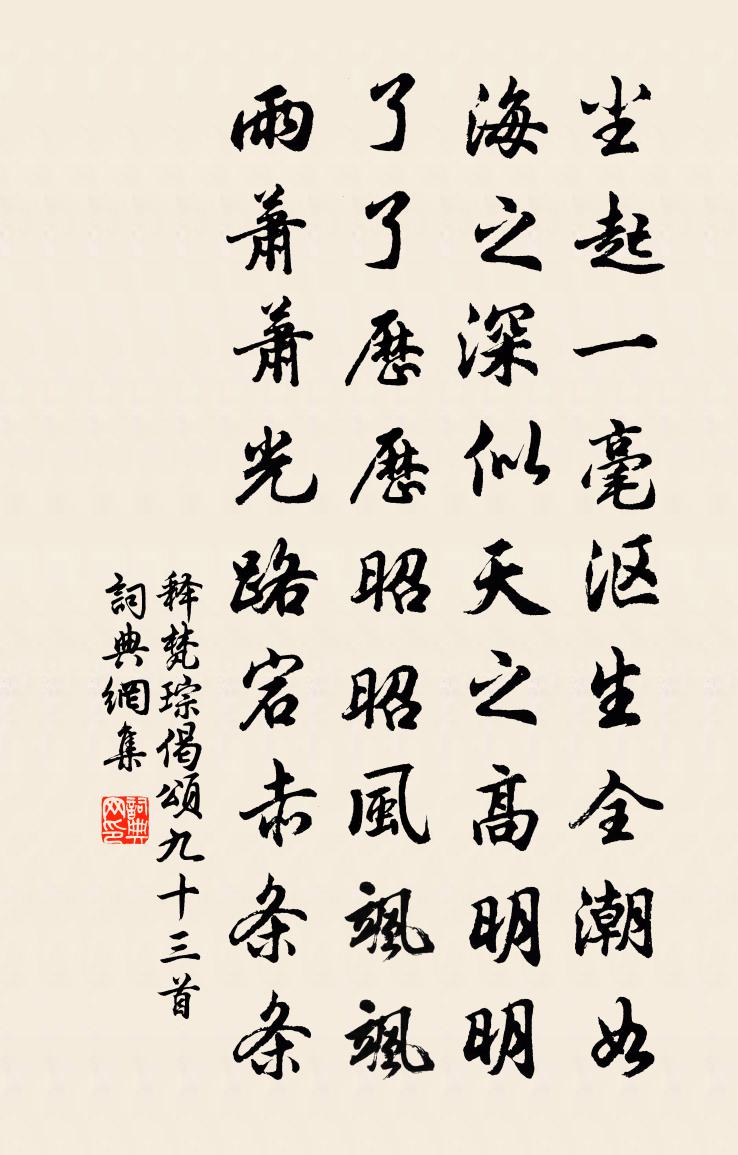 尘起一毫沤生全潮如
海之深似天之高明明
了了历历昭昭风飒飒
雨萧萧光路宕赤条条
释梵琮偈颂九十三首
词典网集
词典网印